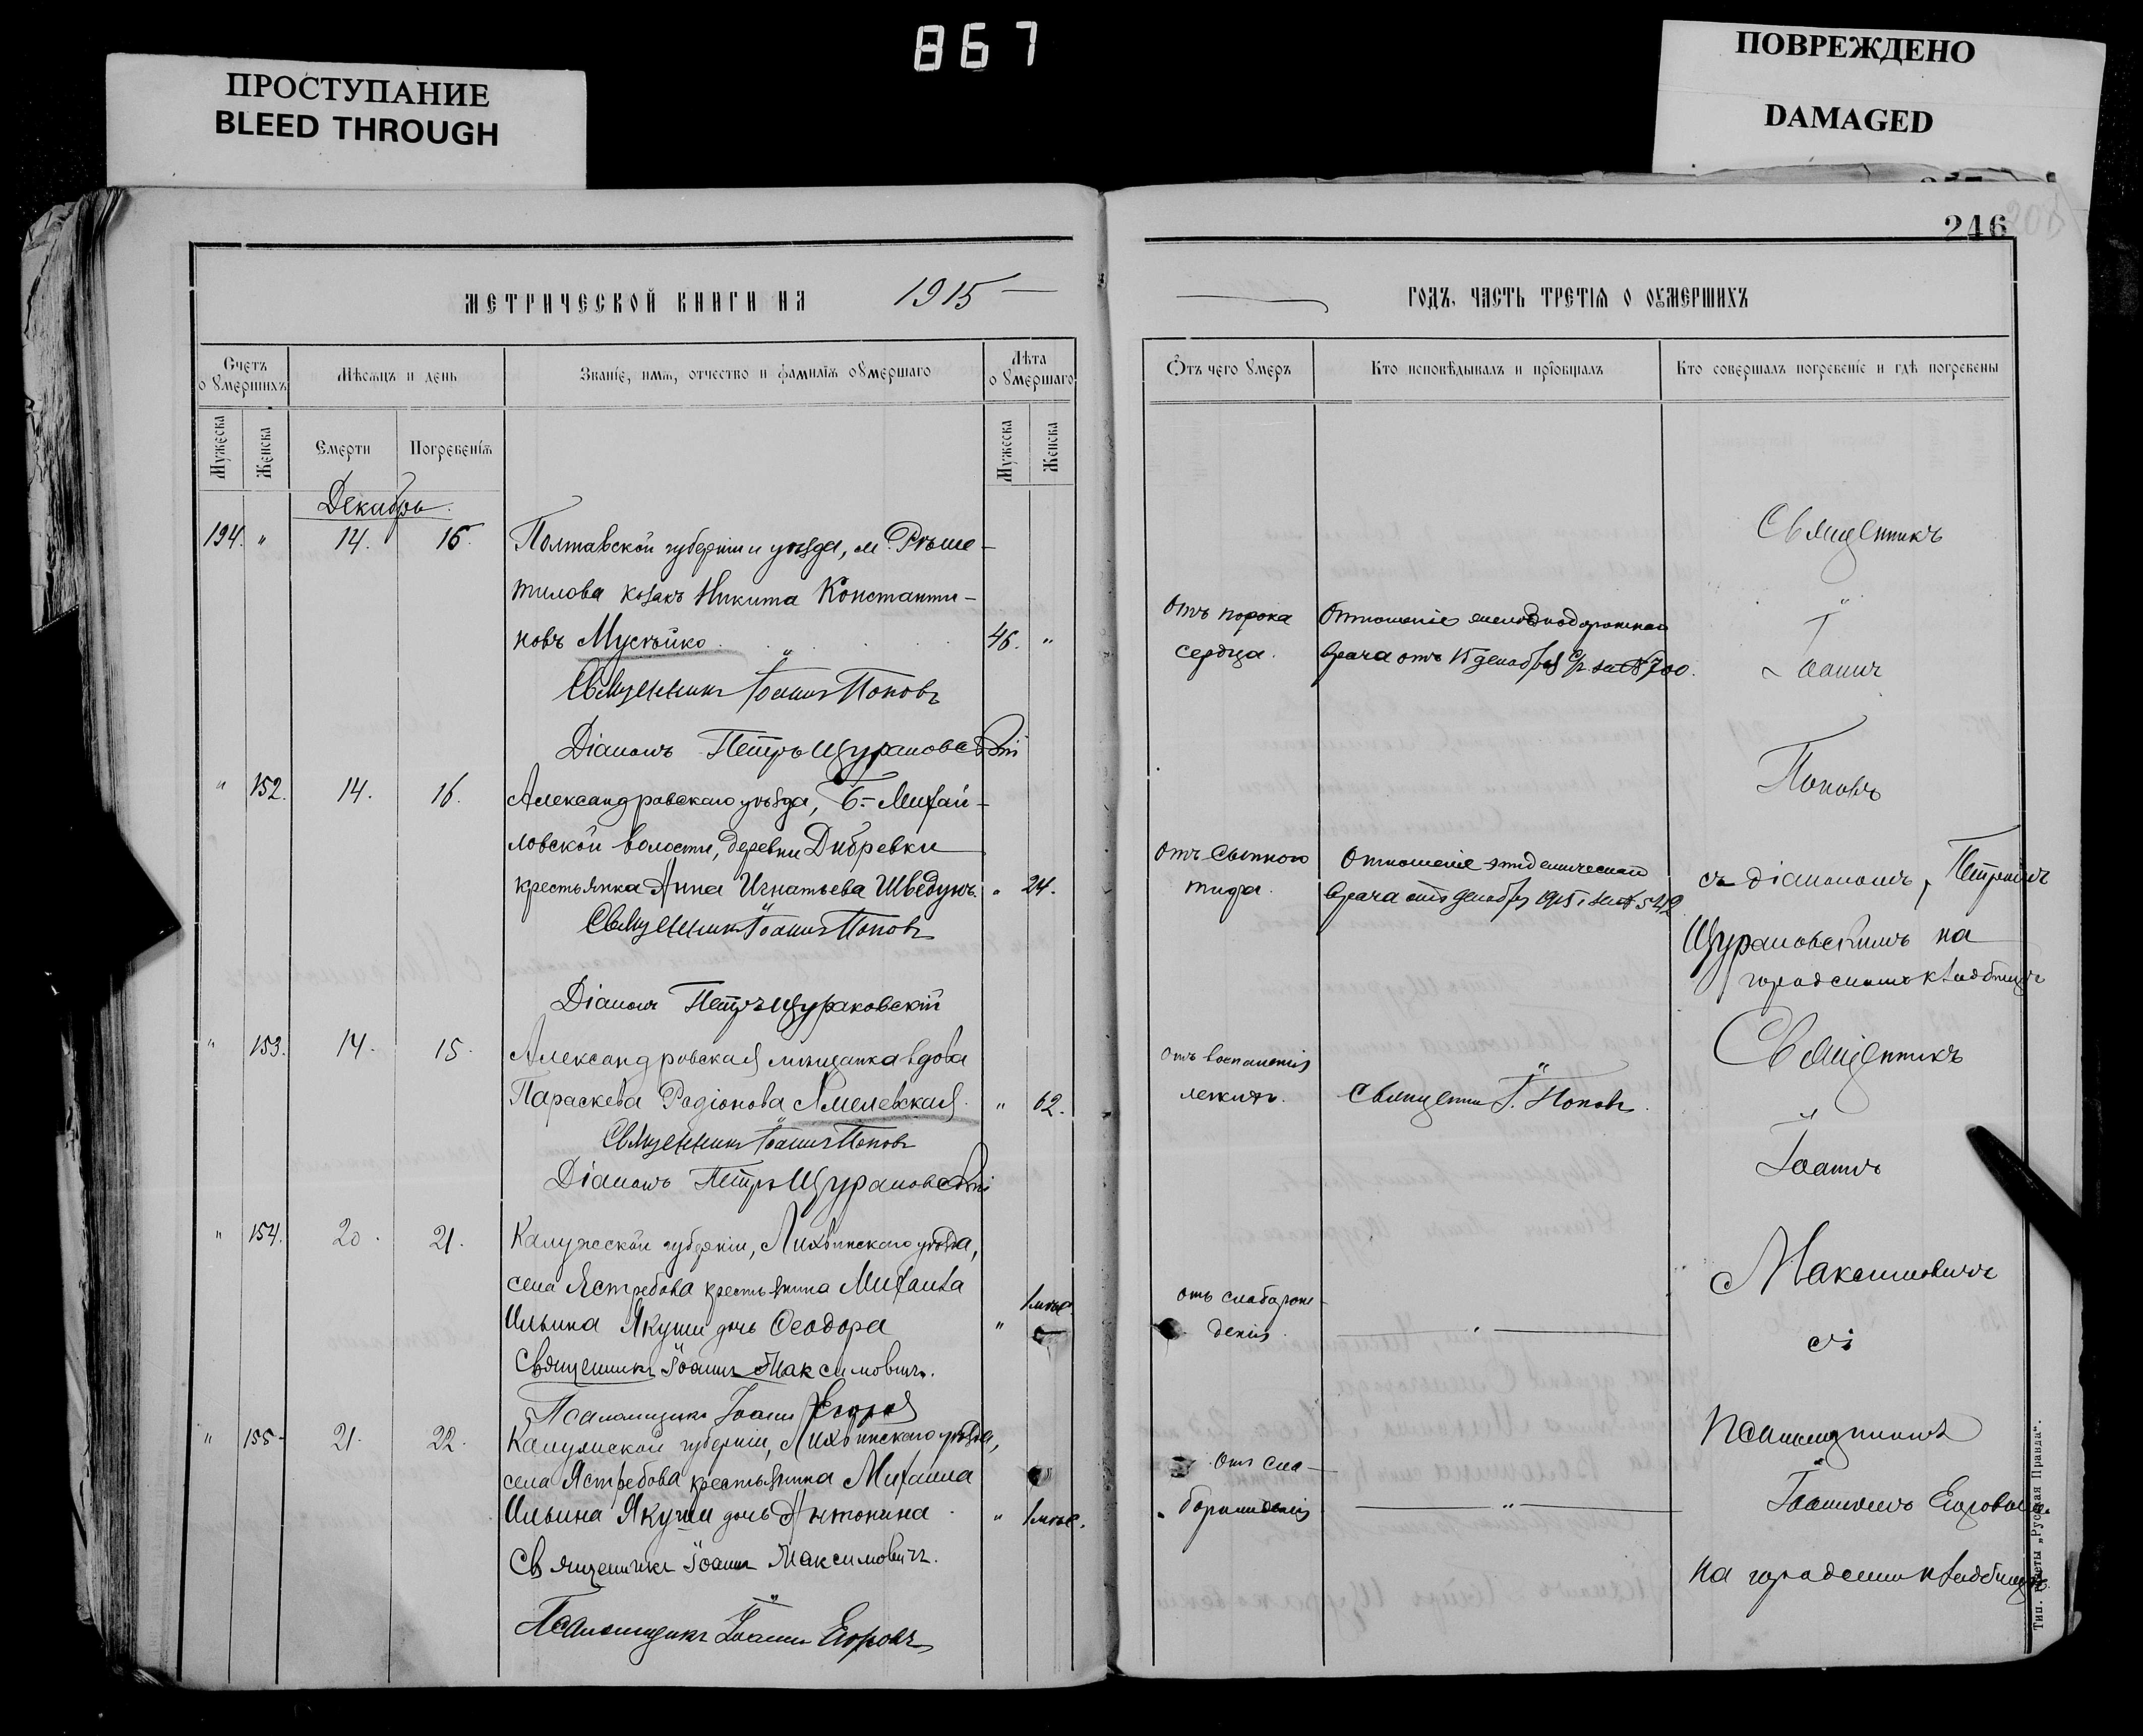 867
ПРОСТУПАНИЕ
BLEED THROUGH
ПОВРЕЖДЕНО
DAMAGED
246
МЕТРИЧЕСКОЙ КНИГИ НА 1915
Счетъ о умершихъ
Мѣсяцъ и день
Званіе, имя, отчество и фамилія умершаго
Лѣта о умершаго
Мужеска
Женска
Смерти
Погребенія
Мужеска
Женска
Декабрь.
194. " 14. 15. Полтавской губерніи и уѣзда, м. Рѣше-
тилова козакъ Никита Константи-
новъ Мусѣйко. 46. "
Священникъ Іоаннъ Поповъ
Діаконъ Петръ Щураковскій
" 152. 14. 16. Александровскаго уѣзда, Б.-Михай-
ловской волости, деревни Дибревки
крестьянка Анна Игнатьева Шведунъ. " 24.
Священникъ Іоаннъ Поповъ
Діаконъ Петръ Щураковскій
" 153. 14. 15. Александровская мѣщанка вдова
Параскева Родіонова " 62.
Священникъ Іоаннъ Поповъ
Діаконъ Петръ Щураковскій
" 154. 20. 21. Калужской губерніи, Лихвинскаго уѣзда,
села Ястребова крестьянина Михаила
Ильина Якуши дочь Ѳеодора " 1 мѣс.
Священникъ Іоаннъ Максимовичъ.
Псаломщикъ Іоаннъ Егоровъ
" 155. 21. 22. Калужской губерніи, Лихвинскаго уѣзда,
села Ястребова крестьянина Михаила
Ильина Якуши дочь Антонина " 1 мѣс.
Священникъ Іоаннъ Максимовичъ.
Псаломщикъ Іоаннъ Егоровъ
ГОДЪ, ЧАСТЬ ТРЕТІЯ О УМЕРШИХЪ
Отъ чего умеръ
Кто исповѣдывалъ и пріобщалъ
Кто совершалъ погребеніе и гдѣ погребены
Отъ порока
сердца.
Отношеніе желѣзнодорожнаго
врача отъ 15 декабря с/г за № 700.
Священникъ
Іоаннъ
Поповъ
Отъ сыпного
тифа.
Отношеніе эпидемическаго
врача отъ декабря 1915 г. за № 542
съ діакономъ Петромъ
Щураковскимъ на
городскомъ кладбищѣ
отъ воспаленія
легкихъ.
Священникъ І. Поповъ.
Священникъ
Іоаннъ
Максимовичъ
съ
отъ слаборож-
денія.
"
псаломщикомъ
Отъ сла-
борожденія
"
Іоанномъ Егоровымъ
на городскомъ кладбищѣ
Тип. газеты „Русская Правда“.